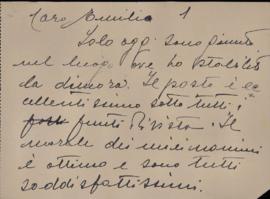 Caro Emilio 1
Solo oggi sono giunto
nel luogo ove ho stabilito
la dimora. Il posto è ec
cellentissimo sotto tutti i
punti di vista. Il
morale dei miei uomini
è ottimo e sono tutti
soddisfattissimi.